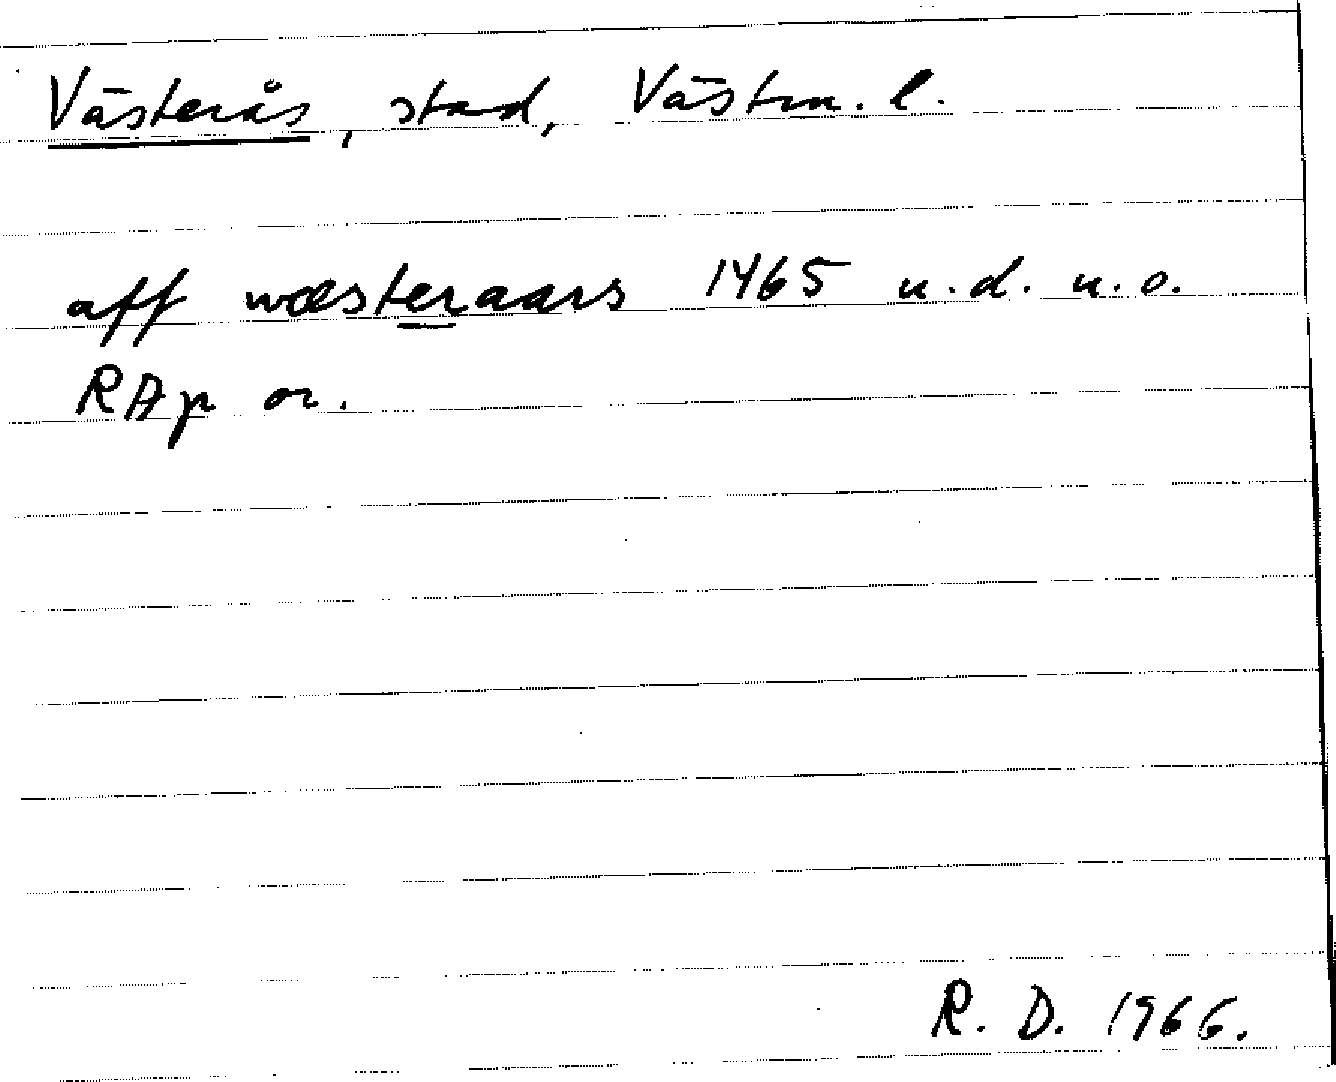 Västerås, stad, Västm. l.
aff wæsteraars 1465 u.d. u.o.
RAp or.
R. D. 1966.